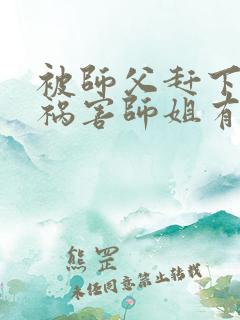 被師父赶下
祸害師姐有
熊罡
未任同意禁止转载